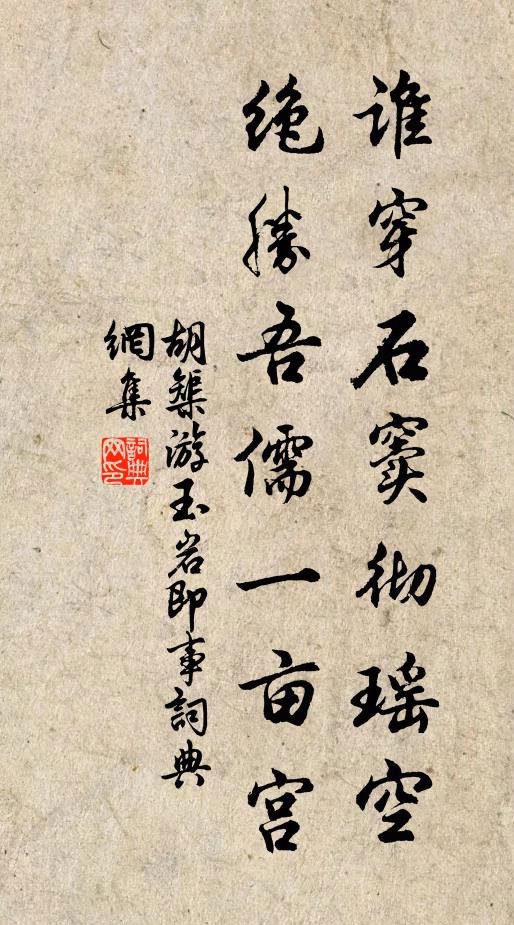 谁穿石窦彻瑶空
绝胜吾儒一亩宫
胡榘游玉岩即事詞典
網集
詞典
网印